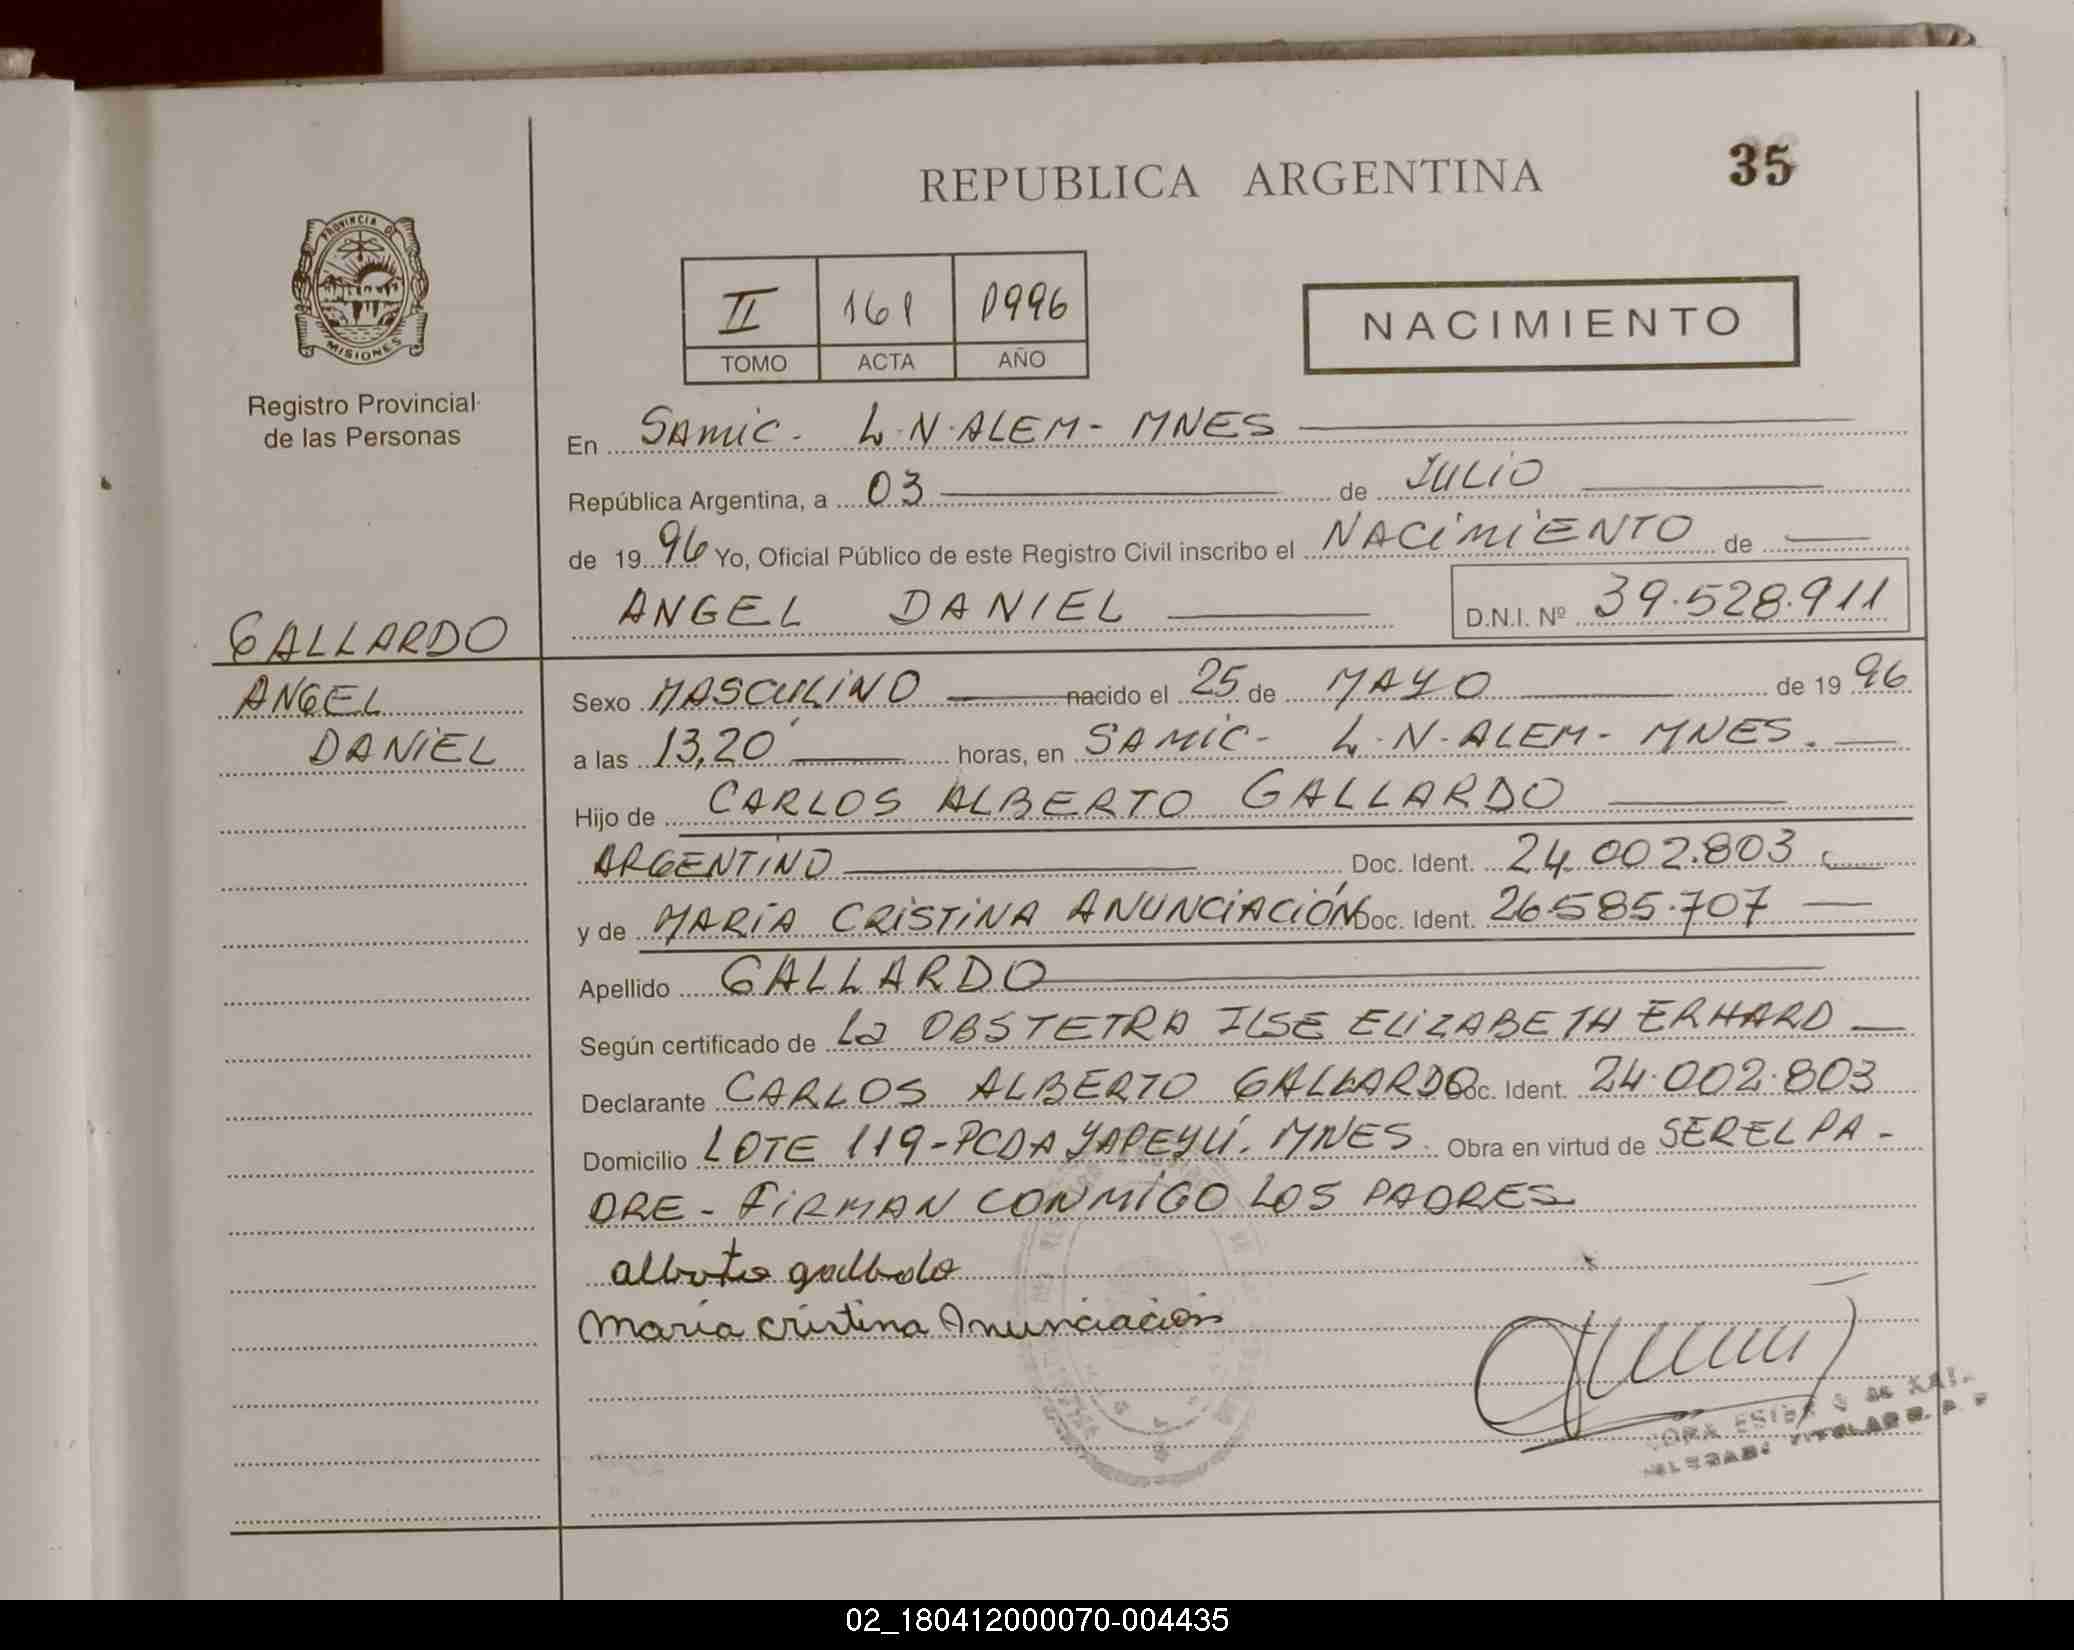 REPUBLICA ARGENTINA
35
PROVINCIA DE
MISIONES
Registro Provincial
de las Personas
II 161 1996
TOMO ACTA AÑO
NACIMIENTO
En SAMIC. L.N.ALEM- MNES
República Argentina, a 03 de JULIO
de 1996 Yo, Oficial Público de este Registro Civil inscribo el NACIMIENTO de
ANGEL DANIEL D.N.I. Nº 39.528.911
GALLARDO
ANGEL
DANIEL
Sexo MASCULINO nacido el 25 de MAYO de 1996
a las 13,20 horas, en SAMIC- L.N-ALEM- MNES.
Hijo de CARLOS ALBERTO GALLARDO
ARGENTINO Doc. Ident. 24.002.803
y de MARÍA CRISTINA ANUNCIACIÓN Doc. Ident. 26.585.707
Apellido GALLARDO
Según certificado de La OBSTETRA ILSE ELIZABETH ERHARD
Declarante CARLOS ALBERTO GALLARDO Doc. Ident. 24.002.803
Domicilio LOTE 119-PCDA YAPEYÚ. MNES. Obra en virtud de SER EL PA-
DRE - FIRMAN CONMIGO LOS PADRES
alberto gallardo
María cristina Anunciación
02_180412000070-004435